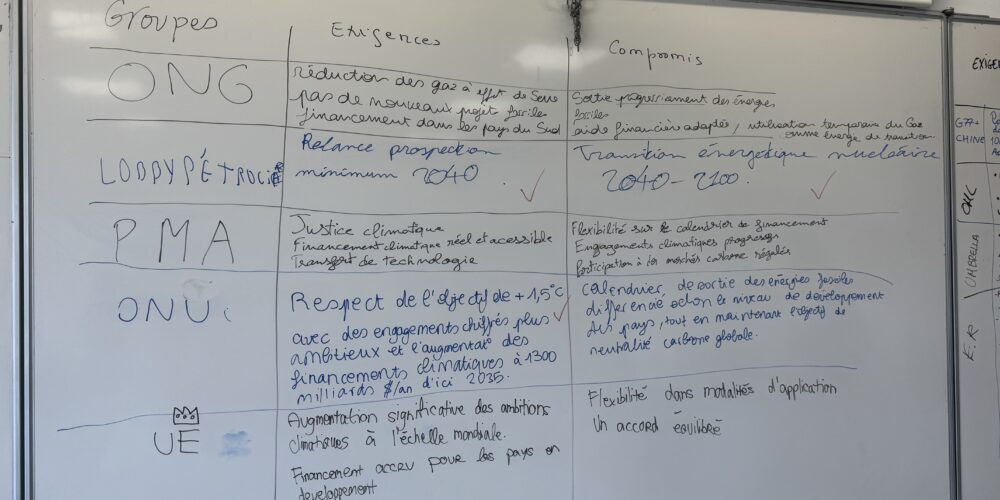 Groupes
Exigences
Compromis
ONG
réduction des gaz à effet de Serre
pas de nouveaux projet fossiles
financement dans les pays du Sud
Sortie progressiament des énergies
fossiles
aide financière adaptée, utilisation temporaire du Gaz
comme énergie de transition.
LOBBY PÉTROCI
Relance prospection
minimum 2040.
Transition énergétique nucléaire
2040-2100.
PMA
Justice climatique
Financement climatique réel et accessible
Transfert de technologie
Flexibilité sur le calendrier de financement
Engagements climatiques progressifs
Participation à des marchés carbone régulés
ONU
Respect de l'objectif de +1,5°C
avec des engagements chiffrés plus
ambitieux et l'augmentat° des
financements climatiques à 1300
milliards $/an d'ici 2035.
calendrier, de sortie des énergies fossiles
différencié selon le niveau de développement
des pays, tout en maintenant l'objectif de
neutralité carbone globale.
UE
Augmentation significative des ambitions
climatiques à l'échelle mondiale.
Financement accru pour les pays en
developpement
Flexibilité dans modalités d'application
Un accord équilibré
EXIGE
G77+
CHINE
UMBRELLA
E.R